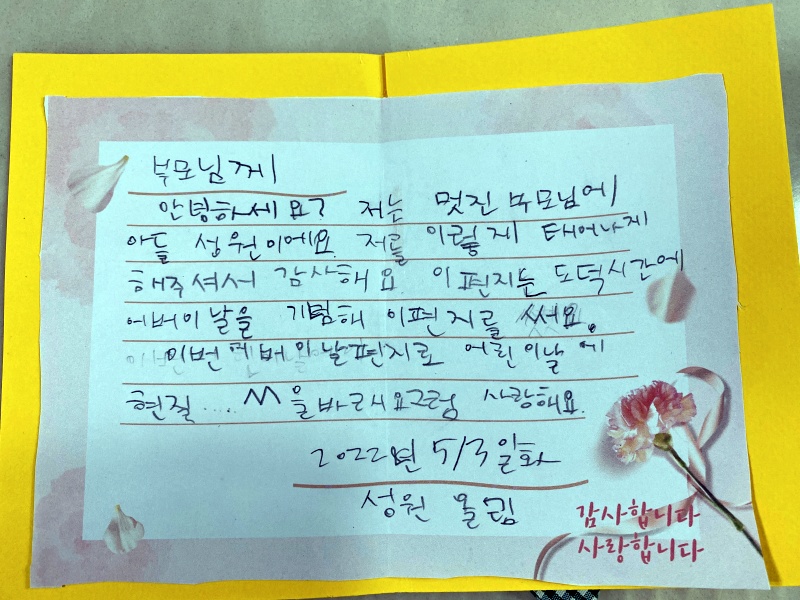 부모님께
안녕하세요? 저는 멋진 부모님에
아들 성원이에요. 저를 이렇게 태어나게
해주셔서 감사해요. 이 편지는 도덕시간에
어버이날을 기념해 이 편지를 써요.
이번 어버이날 편지로 어린이날에
현질 .... M을 바래요 그럼 사랑해요.
2022년 5/3일화
성원 올림
감사합니다
사랑합니다